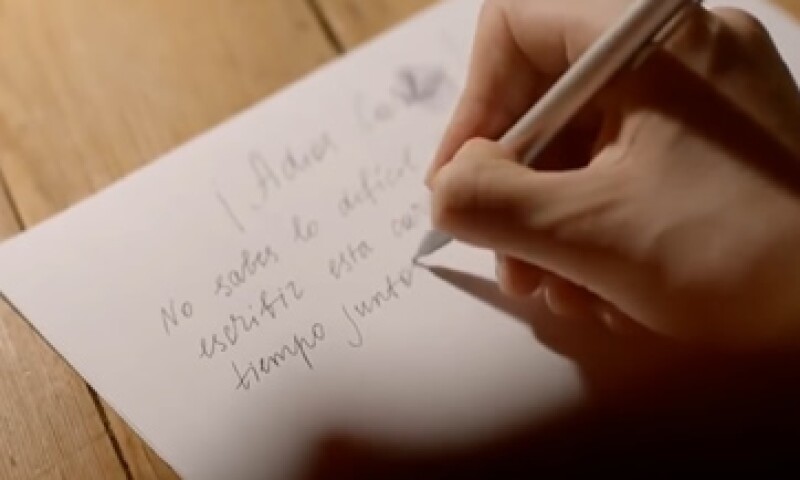 ¡Adios
No sabes lo difícil
escribir esta
tiempo junto